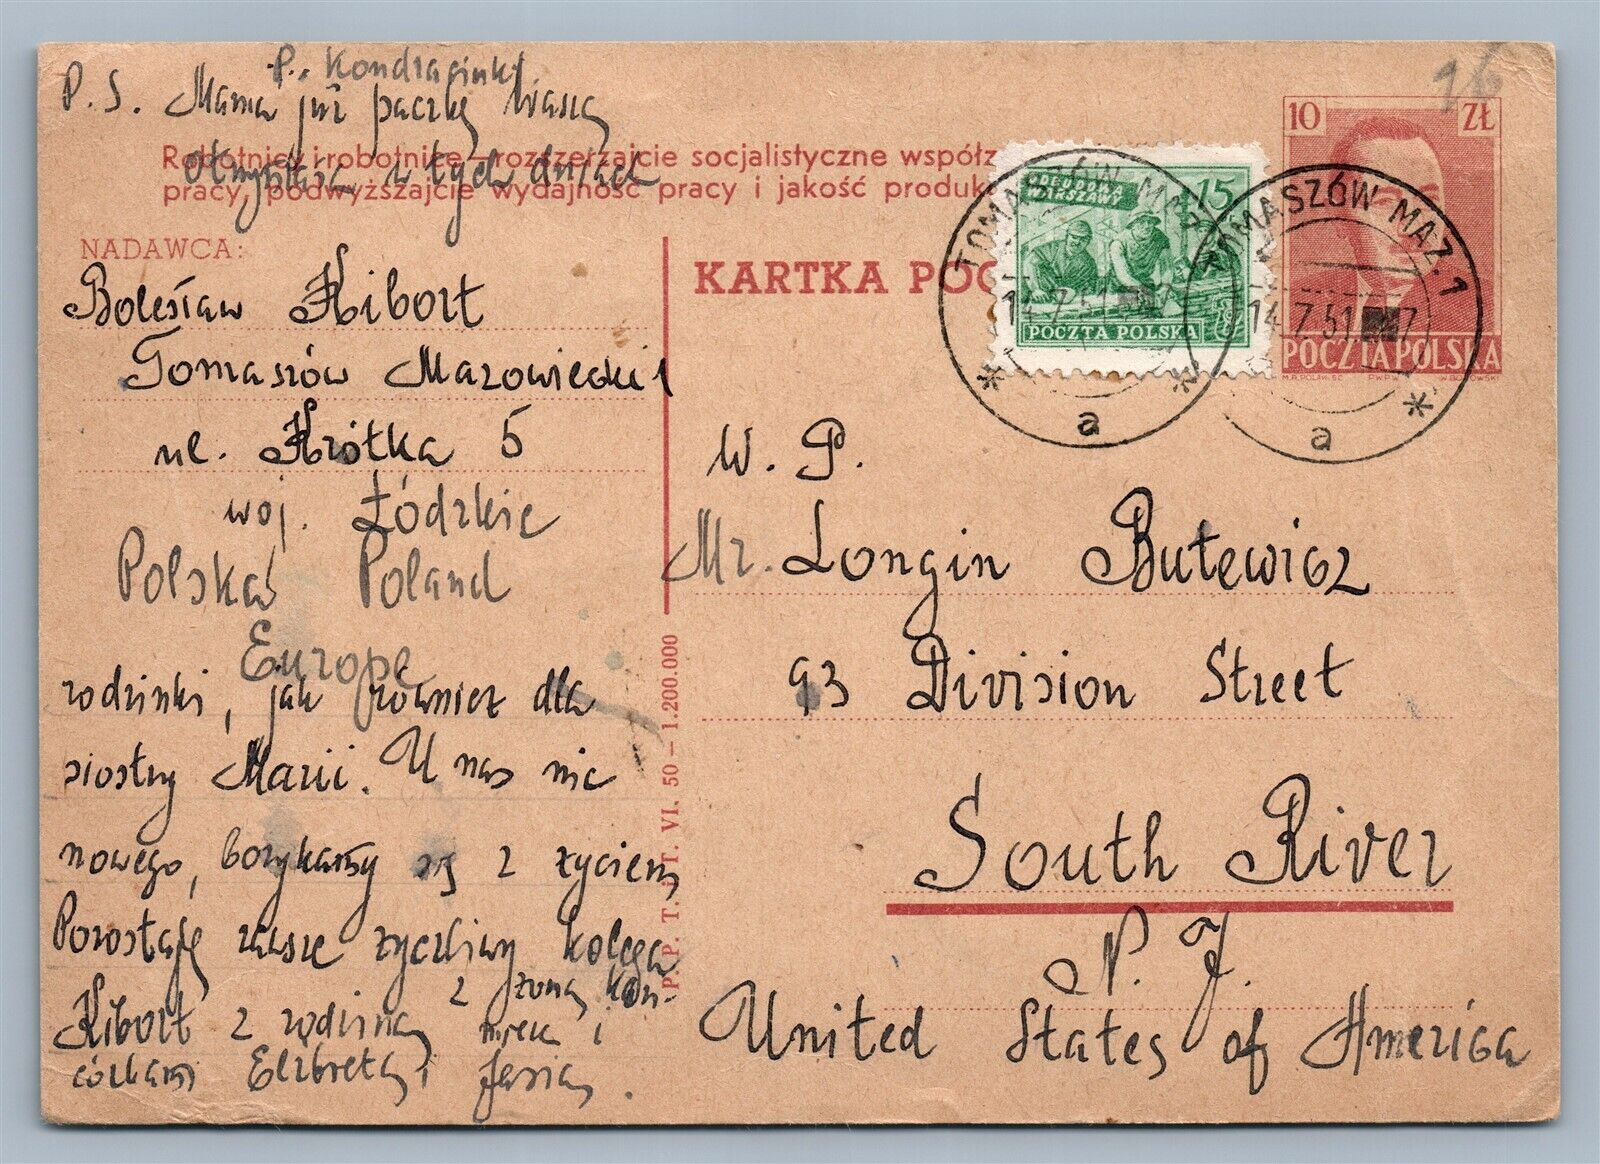 P. Kondracinki
P.S. Mama już paczkę Waszą
otrzymała w tych dniach
Robotnicy i robotnice – rozszerzajcie socjalistyczne współz
pracy, podwyższajcie wydajność pracy i jakość produk
10 ZŁ
POCZTA POLSKA
ODBUDOWA
WARSZAWY
15
POCZTA POLSKA
TOMASZÓW MAZ. 1
14.7.51
a
TOMASZÓW MAZ. 1
14.7.51
a
NADAWCA:
Bolesław Kibort
Tomaszów Mazowiecki 1
ul. Krótka 5
woj. Łódzkie
Polska Poland
Europe
rodzinki, jak również dla
siostry Marii. U nas nic
nowego, borykamy się z życiem
Pozostaję zawsze życzliwy kolega
Kibort z rodziną z żoną
córkami Elżbietą i Jasią.
P. P. T. i T. VI. 50 – 1.200.000
KARTKA POC
W. P.
Mr. Longin Butewicz
93 Division Street
South River
N. J.
United States of America